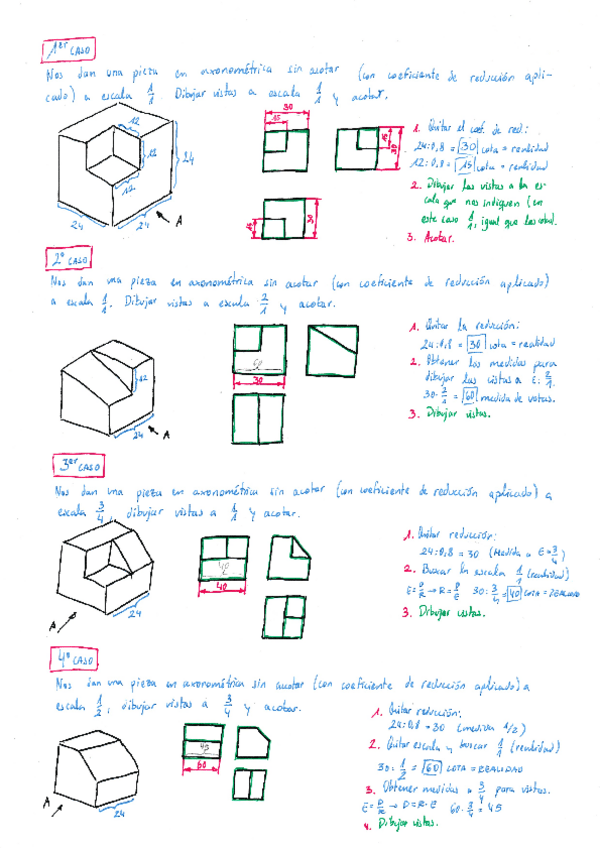 1er CASO
Nos dan una pieza en axonométrica sin acotar (con coeficiente de reducción apli-
cado) a escala 1/1. Dibujar vistas a escala 1/1 y acotar.
12
12
12
24
24
24
A
30
15
15
30
15
30
1. Quitar el coef. de red.:
24:0,8 = 30 cota = realidad
12:0,8 = 15 cota = realidad
2. Dibujar las vistas a la es-
cala que nos indiquen (en
este caso 1/1, igual que la
3. Acotar.
2º CASO
Nos dan una pieza en axonométrica sin acotar (con coeficiente de reducción aplicado)
a escala 1/1. Dibujar vistas a escala 2/1 y acotar.
12
24
A
60
30
1. Quitar la reducción:
24:0,8 = 30 cota = realidad
2. Obtener las medidas para
dibujar las vistas a E: 2/1.
30· 2/1 = 60 medida de vistas.
3. Dibujar vistas.
3er CASO
Nos dan una pieza en axonométrica sin acotar (con coeficiente de reducción aplicado) a
escala 3/4, dibujar vistas a 1/1 y acotar.
24
A
40
40
1. Quitar reducción:
24:0,8 = 30 (Medida a E=3/4)
2. Buscar la escala 1/1 (realidad)
E=D/R → R=D/E 30: 3/4 = 40 COTA = REALIDAD
3. Dibujar vistas.
4º CASO
Nos dan una pieza en axonométrica sin acotar (con coeficiente de reducción aplicado) a
escala 1/2, dibujar vistas a 3/4 y acotar.
24
A
45
60
1. Quitar reducción:
24:0,8 = 30 (medida 1/2)
2. Quitar escala y buscar 1/1 (realidad)
30: 1/2 = 60 COTA = REALIDAD
3. Obtener medidas a 3/4 para vistas.
E=D/R → D=R·E 60· 3/4 = 45
4. Dibujar vistas.